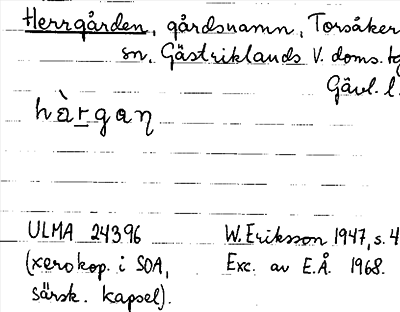 Herrgården, gårdsnamn, Torsåker
sn, Gästriklands V. doms. tg
Gävl. l.
hàrgaṉ
ULMA 24396
(xerokop. i SOA,
särsk. kapsel).
W. Eriksson 1947, s. 4
Exc. av E.Å. 1968.